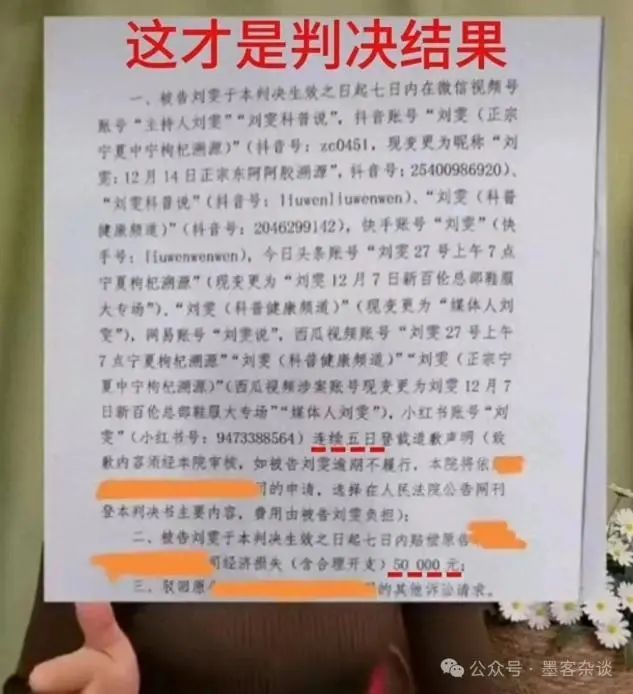 这才是判决结果
一、被告刘雯于本判决生效之日起七日内在微信视频号
账号“主持人刘雯”“刘雯科普说”，抖音账号“刘雯（正宗
宁夏中宁枸杞溯源）”（抖音号：zc0451，现变更为昵称“刘
雯：12月14日正宗东阿阿胶溯源”，抖音号：25400986920）、
“刘雯科普说”（抖音号：liuwenliuwenwen）、“刘雯（科普
健康频道）”（抖音号：2046299142），快手账号“刘雯”（快
手号：liuwenwenwen），今日头条账号“刘雯27号上午7点
宁夏枸杞溯源”（现变更为“刘雯12月7日新百伦总部鞋服
大专场”）、“刘雯（科普健康频道）”（现变更为“媒体人刘
雯”），网易账号“刘雯说”，西瓜视频账号“刘雯27号上午
7点宁夏枸杞溯源”“刘雯（科普健康频道）”“刘雯（正宗宁
夏中宁枸杞溯源）”（西瓜视频涉案账号现变更为刘雯12月7
日新百伦总部鞋服大专场”“媒体人刘雯”），小红书账号“刘
雯”（小红书号：9473388564）连续五日登载道歉声明（致
歉内容须经本院审核，如被告刘雯逾期不履行，本院将依
司的申请，选择在人民法院公告网刊
登本判决书主要内容，费用由被告刘雯负担）；
二、被告刘雯于本判决生效之日起七日内赔偿原告
司经济损失（含合理开支）50 000元；
三、驳回原 的其他诉讼请求。
公众号·墨客杂谈